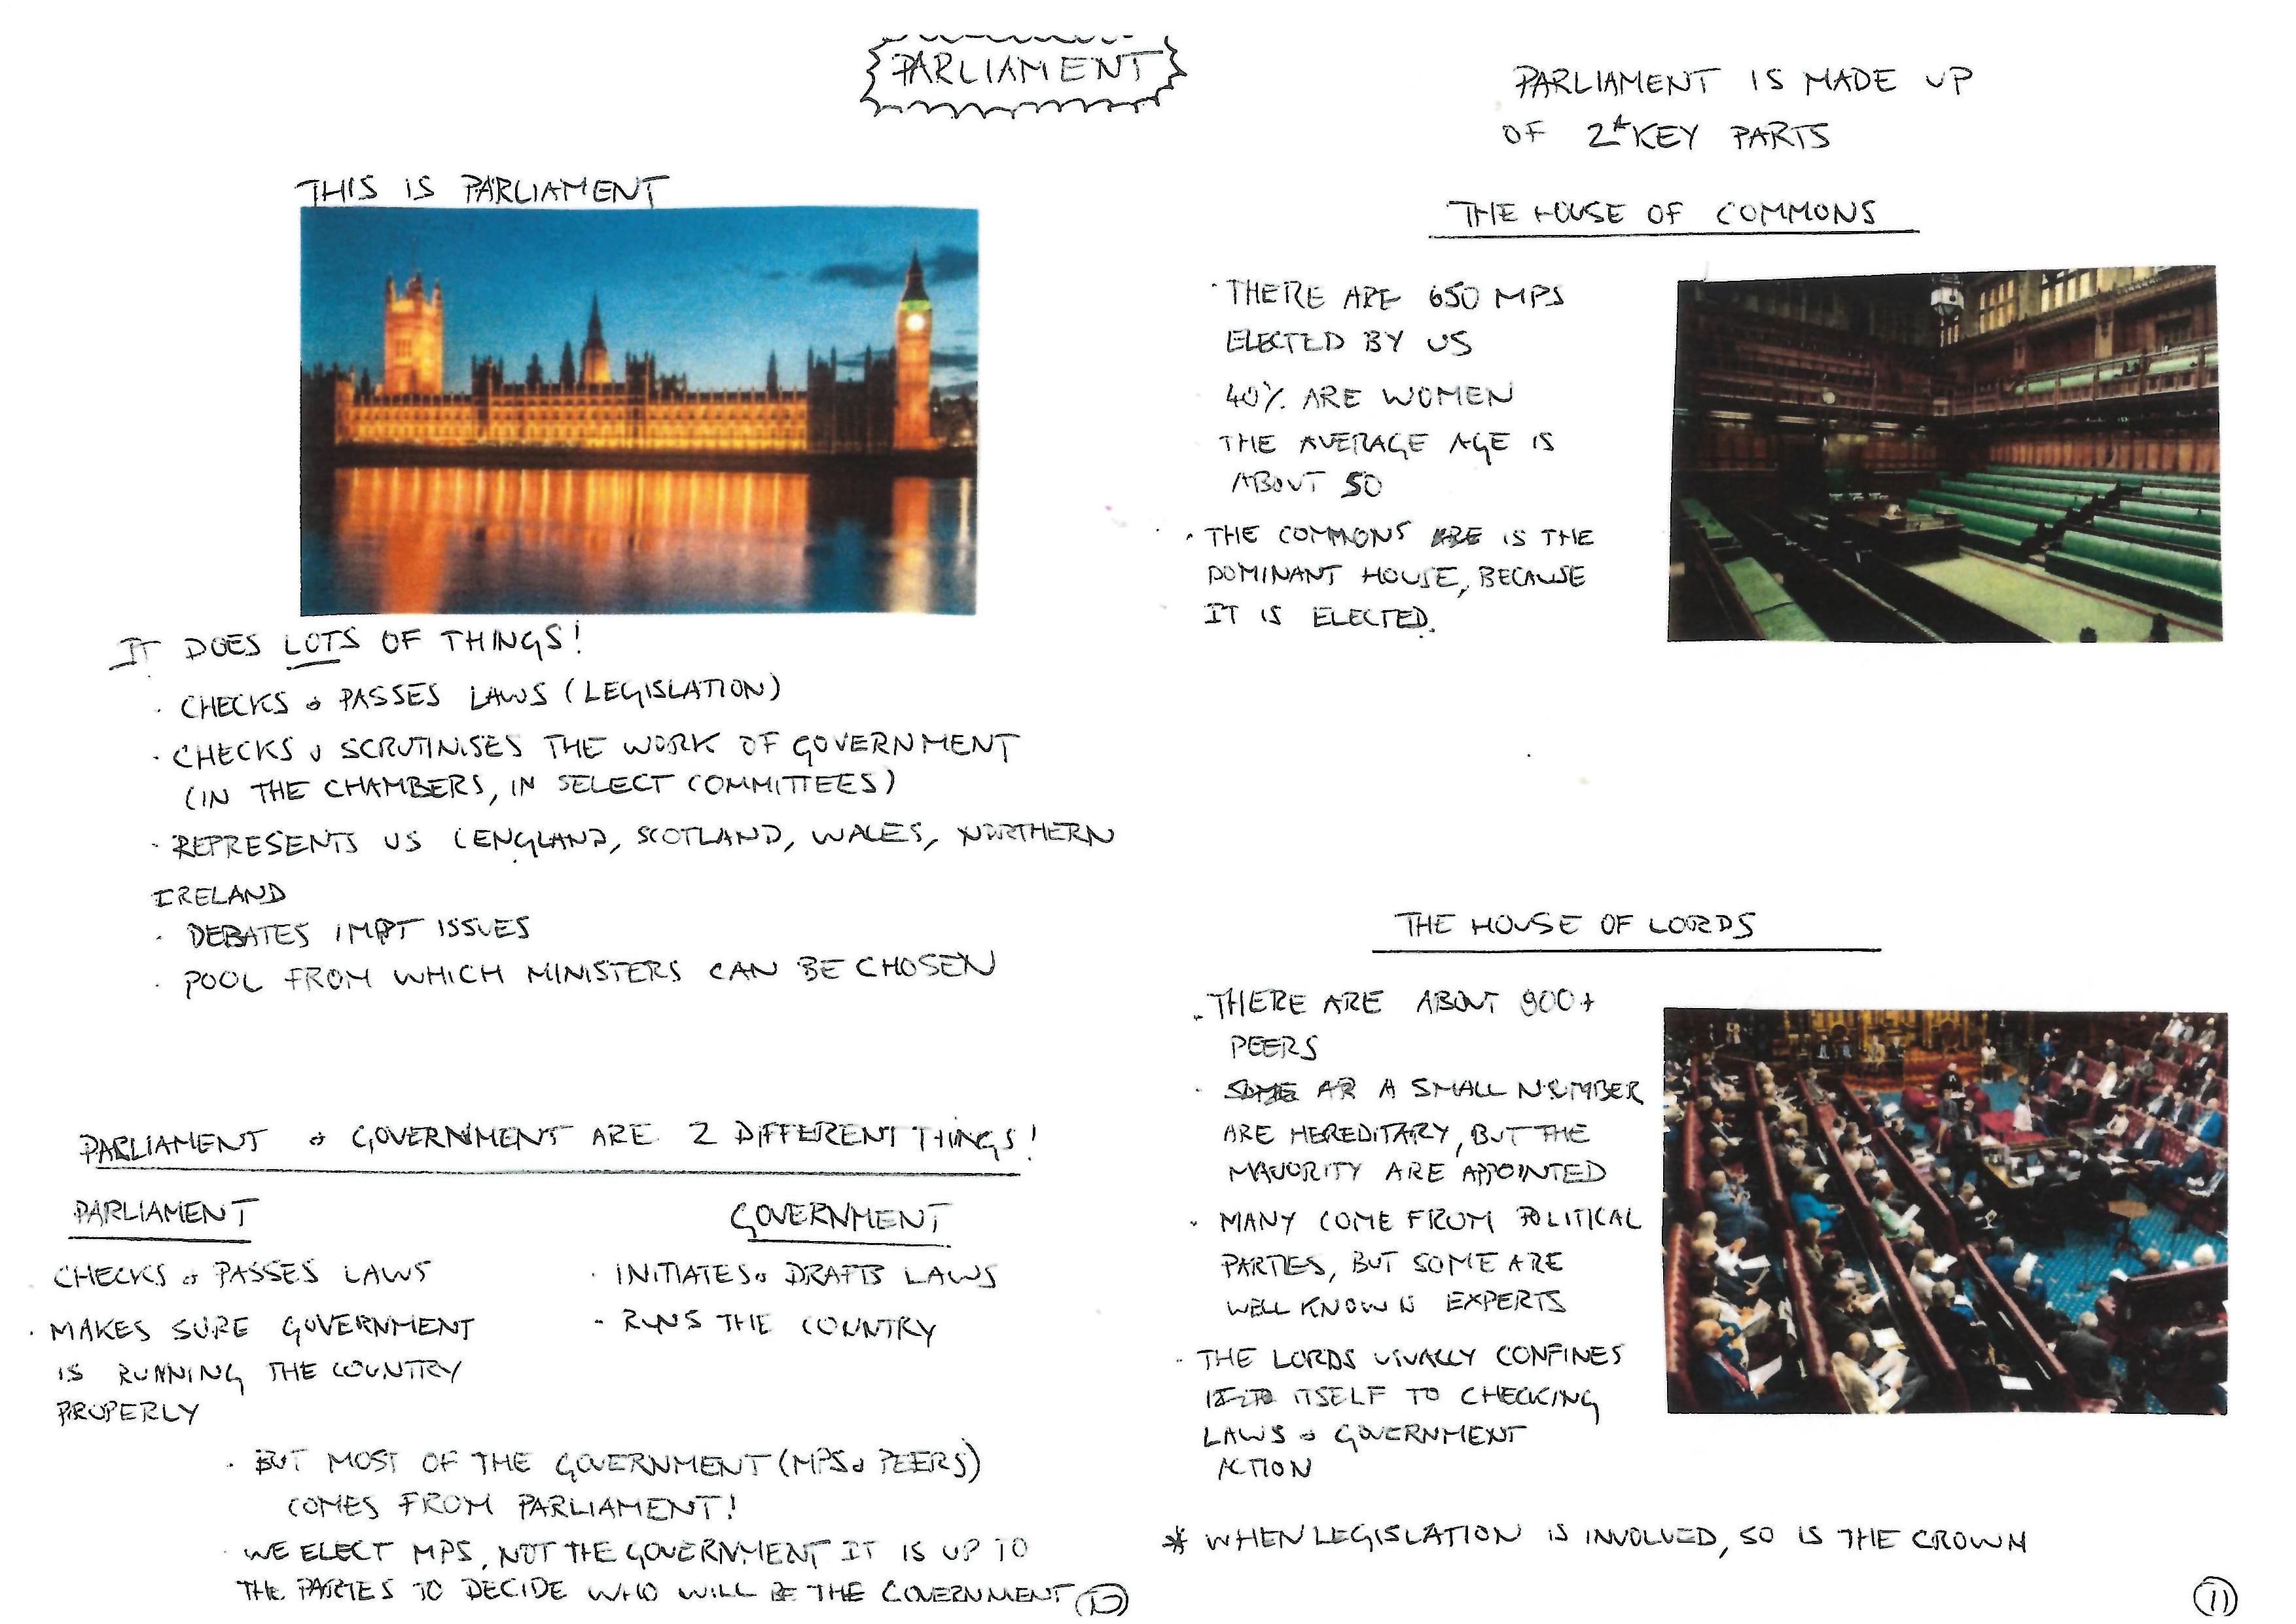 PARLIAMENT
THIS IS PARLIAMENT
IT DOES LOTS OF THINGS!
· CHECKS & PASSES LAWS (LEGISLATION)
· CHECKS & SCRUTINISES THE WORK OF GOVERNMENT
(IN THE CHAMBERS, IN SELECT COMMITTEES)
· REPRESENTS US (ENGLAND, SCOTLAND, WALES, NORTHERN
IRELAND
· DEBATES IMPT ISSUES
· POOL FROM WHICH MINISTERS CAN BE CHOSEN
PARLIAMENT & GOVERNMENT ARE 2 DIFFERENT THINGS!
PARLIAMENT
CHECKS & PASSES LAWS
· MAKES SURE GOVERNMENT
IS RUNNING THE COUNTRY
PROPERLY
GOVERNMENT
· INITIATES & DRAFTS LAWS
- RUNS THE COUNTRY
· BUT MOST OF THE GOVERNMENT (MPS & PEERS)
COMES FROM PARLIAMENT!
· WE ELECT MPS, NOT THE GOVERNMENT IT IS UP TO
THE PARTIES TO DECIDE WHO WILL BE THE GOVERNMENT
10
PARLIAMENT IS MADE UP
OF 2* KEY PARTS
THE HOUSE OF COMMONS
· THERE ARE 650 MPS
ELECTED BY US
40% ARE WOMEN
THE AVERAGE AGE IS
ABOUT 50
· THE COMMONS ARE IS THE
DOMINANT HOUSE, BECAUSE
IT IS ELECTED.
THE HOUSE OF LORDS
· THERE ARE ABOUT 800+
PEERS
· SOME AR A SMALL NUMBER
ARE HEREDITARY, BUT THE
MAJORITY ARE APPOINTED
· MANY COME FROM POLITICAL
PARTIES, BUT SOME ARE
WELL KNOWN EXPERTS
· THE LORDS USUALLY CONFINES
ITSELF TO CHECKING
LAWS & GOVERNMENT
ACTION
* WHEN LEGISLATION IS INVOLVED, SO IS THE CROWN
11